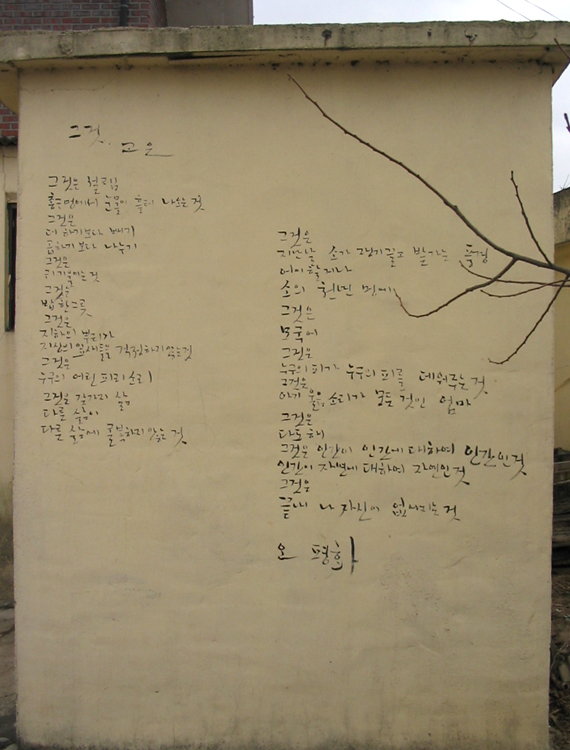 그것
고은
그것은 설레임
흙먼에서 눈물이 흘러 나오는 것
그것은
더하기보다 빼기
곱하기보다 나누기
그것은
귀 기울이는 것
그것은
밥 한 그릇
그것은
지하의 뿌리가
지상의 잎새들을 걱정하지 않는 것
그것은
누구의 어린 피리소리
그것은 갖가지 삶
다른 삶이
다른 삶에 굴복하지 않는 것
그것은
지난날 소가 그렇기 끌고 밭가는 풍경
어이할거나
소의 천년 멍에
그것은
모국어
그것은
누구의 피가 누구의 피를 데워주는 것
그것은
아기 울음소리가 모든 것인 엄마
그것은
다도해
그것은 인간이 인간에 대하여 인간인 것
인간이 자연에 대하여 자연인 것
그것은
끝내 나 자신이 없어지는 것
오 평화